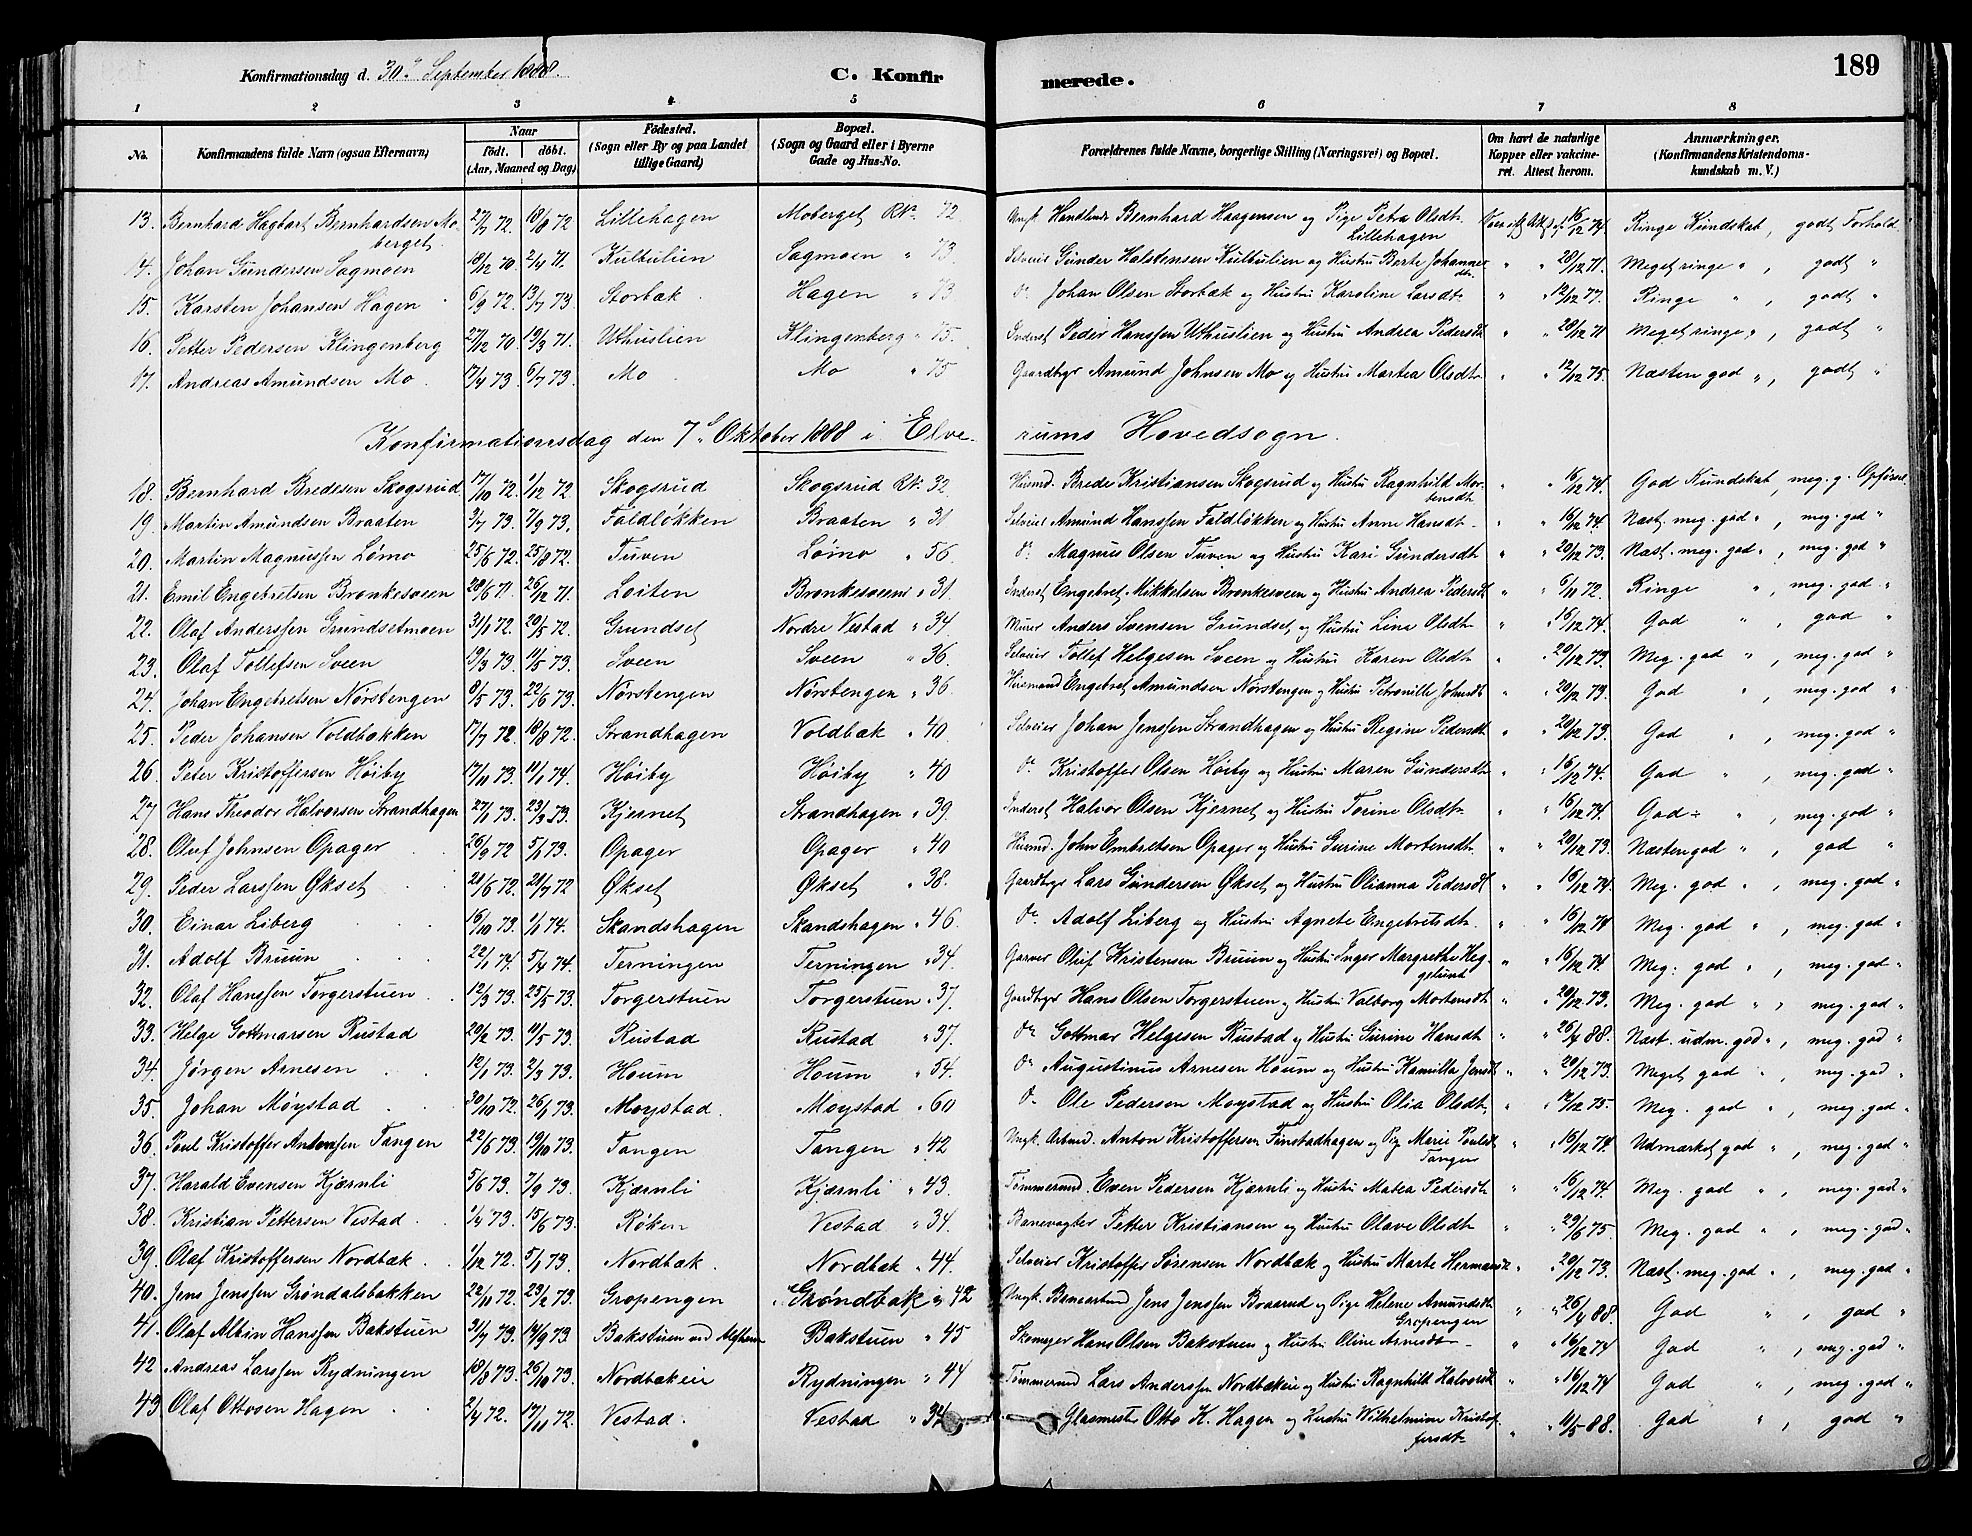 Konfirmationsdag d. 30te September 1888.
C. Konfir
merede.
189
1 2 3 4 5 6 7 8
No. Konfirmandens fulde Navn (ogsaa Efternavn) Naar født. døbt. (Aar, Maaned og Dag) Födested. (Sogn eller By og paa Landet tillige Gaard) Bopæl. (Sogn og Gaard eller i Byerne Gade og Hus-No. Forældrenes fulde Navne, borgerlige Stilling (Næringsvei) og Bopæl. Om havt de naturlige Kopper eller vakcineret. Attest herom. Anmærkninger. (Konfirmandens Kristendomskundskab m. V.)
13. Bernhard Hagbart Bernhardsen Moberget. 27/7 72. 18/8 72 Lillehagen Moberget RN. 72. Ungk. Handlende Bernhard Haagensen og Pige Petra Olsdt. Lillehagen 16/12 74. Ringe Kundskab, godt Forhold.
14. Johan Gundersen Sagmoen 18/12 70. 2/4 71. Kulbulien Sagmoen " 73. Selveier Gunder Halstensen Kulbulien og Hustru Berte Johannesdtr. " " 28/12 71. Meget ringe ", godt "
15. Karsten Johansen Hagen 6/9 72. 13/7 73. Storbæk. Hagen " 73 Do. Johan Olsen Storbæk og Hustru Karoline Larsdt. " " 12/12 77. Ringe ", godt "
16. Petter Pedersen Klingenberg 27/12 70 19/3 71. Uthuslien Klingenberg " 75. Inderst Peder Hanssen Uthuslien og Hustru Andrea Pedersdt. " " 28/12 71 Meget ringe ", godt "
17. Andreas Amundsen Mo. 17/4 73. 6/7 73. Mo. Mo " 75 Gaardbrgr Amund Johnsen Mo og Hustru Martea Olsdt. " " 12/12 75. Næsten god ", godt "
Konfirmationsdag den 7de Oktober 1888 i Elverums Hovedsogn.
18. Bernhard Bredesen Skogsrud 17/10 72. 1/12 72 Skogsrud Skogsrud RN. 32. Husmd. Brede Kristiansen Skogsrud og Hustru Ragnhild Mortensdt " " 16/12 74. God Kundskab, meg. g. Opførsel
19. Martin Amundsen Braaten 3/7 73. 7/9 73. Faldløkken Braaten " 31 Selveier Amund Hanssen Faldløkken og Hustru Anne Hansdt. " " 16/12 74. Næst. meg. god ", meg. god "
20. Martin Magnussen Lømo 25/6 72. 25/8 72. Tuven Lømo " 56. Do. Magnus Olsen Tuven og Hustru Kari Gundersdt " " 20/12 73. Næst. meg. god ", meg. god "
21. Emil Engebretsen Bronkesveen 28/6 71. 26/12 71. Løiten Bronkesveen " 31. Inderst Engebret Mikkelsen Bronkesveen og Hustru Andrea Pedersdt " " 6/11 72. Ringe ", meg. god "
22. Olaf Anderssen Grundsetmoen 31/1 72. 20/5 72. Grundset Nordre Vestad " 34. Murer Anders Svensen Grundset og Hustru Line Olsdt. " " 16/12 74. God ", god "
23. Olaf Tollefsen Sveen 19/3 73. 11/5 73. Sveen Sveen " 36. Selveier Tollef Helgesen Sveen og Hustru Karen Olsdt " " 20/12 73. Meg. god ", meg. god "
24. Johan Engebretsen Nørstengen 8/5 73. 22/6 73. Nørstengen Nørstengen " 36 Husmand Engebret Amundsen Nørstengen og Hustru Petronille Johnsdt " " 20/12 73 God ", meg. god "
25. Peder Johansen Voldbakken 17/7 72. 18/8 72. Strandhagen Voldbæk " 40. Selveier Johan Jenssen Strandhagen og Hustru Regine Pedersdt " " 20/12 73. God ", meg. god "
26. Peter Kristoffersen Høiby 17/11 73. 11/1 74. Høiby Høiby " 40 Do. Kristoffer Olsen Høiby og Hustru Maren Gundersdt. " " 16/12 74. God ", meg. god "
27 Hans Theodor Halvorsen Strandhagen 27/1 73. 23/3 73. Kjernet Strandhagen " 39. Inderst Halvor Olsen Kjernet og Hustru Torine Olsdt. " " 16/12 74. God ", meg. god "
28. Oluf Johnsen Opager 26/9 72 5/1 73. Opager Opager " 40 Husmd. John Embretsen Opager og Hustru Gurine Mortensdt. " " 20/12 73. Næsten god ", god "
29. Peder Larssen Økset 21/6 72. 21/7 72 Økset Økset " 38. Gaardbrgr Lars Gundersen Økset og Hustru Olianna Pedersdt " " 16/12 74. Meg. god ", meg. god "
30. Einar Liberg 16/10 73. 1/1 74. Skandshagen Skandshagen " 46. Do. Adolf Liberg og Hustru Agnete Engebretsdt. " " 16/12 74 Meg. god ", meg. god "
31. Adolf Bruun 22/1 74. 5/4 74. Terningen Terningen " 34. Garver Oluf Kristensen Bruun og Hustru Inger Margrethe Heggelund " " 16/12 74. Meg. god ", meg. god "
32. Olaf Hanssen Torgerstuen 12/3 73. 25/5 73. Torgerstuen Torgerstuen " 37. Gaardbrgr Hans Olsen Torgerstuen og Hustru Valborg Mortensdt " " 20/12 73. Meg. god ", meg. god "
33. Helge Gottmarsen Rustad 20/2 73. 11/5 73. Rustad Rustad " 37. Do. Gottmar Helgesen Rustad og Hustru Gurine Hansdt " " 26/4 88. Næst. udm. god ", meg. god "
34. Jørgen Arnesen 12/1 73. 2/3 73. Houm Houm " 54. Do. Augustinus Arnesen Houm og Hustru Kamilla Jensdt " " 20/12 73. Meget god ", meg. god "
35. Johan Møystad 30/10 72. 26/1 73. Moystad. Moystad " 60 Do. Ole Pedersen Moystad og Hustru Olia Olsdt. " " 12/12 75. Meg. god ", meg. god "
36. Poul Kristoffer Antonssen Tangen 22/6 73. 19/10 73. Tangen Tangen " 42 Ungk. Arbmd. Anton Kristoffersen Finstadhagen og Pige Marie Poulsdt Tangen " " 16/12 74. Udmærket god ", meg. god "
37. Harald Evensen Kjærnli 5/6 73. 7/9 73. Kjærnli Kjærnli " 43. Tømmermd. Even Pedersen Kjærnli og Hustru Matea Pedersdt. " " 16/12 74. Meg. god ", meg. god "
38. Kristian Pettersen Vestad. 1/4 73. 15/6 73. Røken Vestad " 34. Banevogter Petter Kristiansen og Hustru Olave Olsdt. " " 29/6 75. Meg. god ", meg. god "
39. Olaf Kristoffersen Nordbæk. 1/12 72. 5/1 73. Nordbæk. Nordbæk " 44. Selveier Kristoffer Sørensen Nordbæk og Hustru Marte Hermansdt " " 20/12 73. Næst. meg. god ", meg. god "
40. Jens Jenssen Grøndalsbakken 22/11 72. 23/2 73. Gropengen Grøndbak " 42 Ungk. Banearbmd Jens Jenssen Braarud og Pige Helene Amundsdt Gropengen " " 26/4 88. God ", god "
41. Olaf Albin Hanssen Bakstuen 31/7 73. 14/9 73. Bakstuen Bakstuen " 45 Skomager Hans Olsen Bakstuen og Hustru Oline Arnesdt. " " 16/12 74 God ", meg. god "
42 Andreas Larssen Rydningen 18/8 73. 26/10 73. Nordbækeie Rydningen " 44 Tømmermd Lars Anderssen Nordbækeie og Hustru Ragnhild Halvorsdt " " 16/12 74 God ", meg. god "
43 Olaf Ottosen Hagen 2/4 72. 17/11 72. Vestad. Vestad " 34 Glasmest. Otto K. Hagen og Hustru Wilhelmine Kristoffersdt. " " 11/5 88. God ", god "